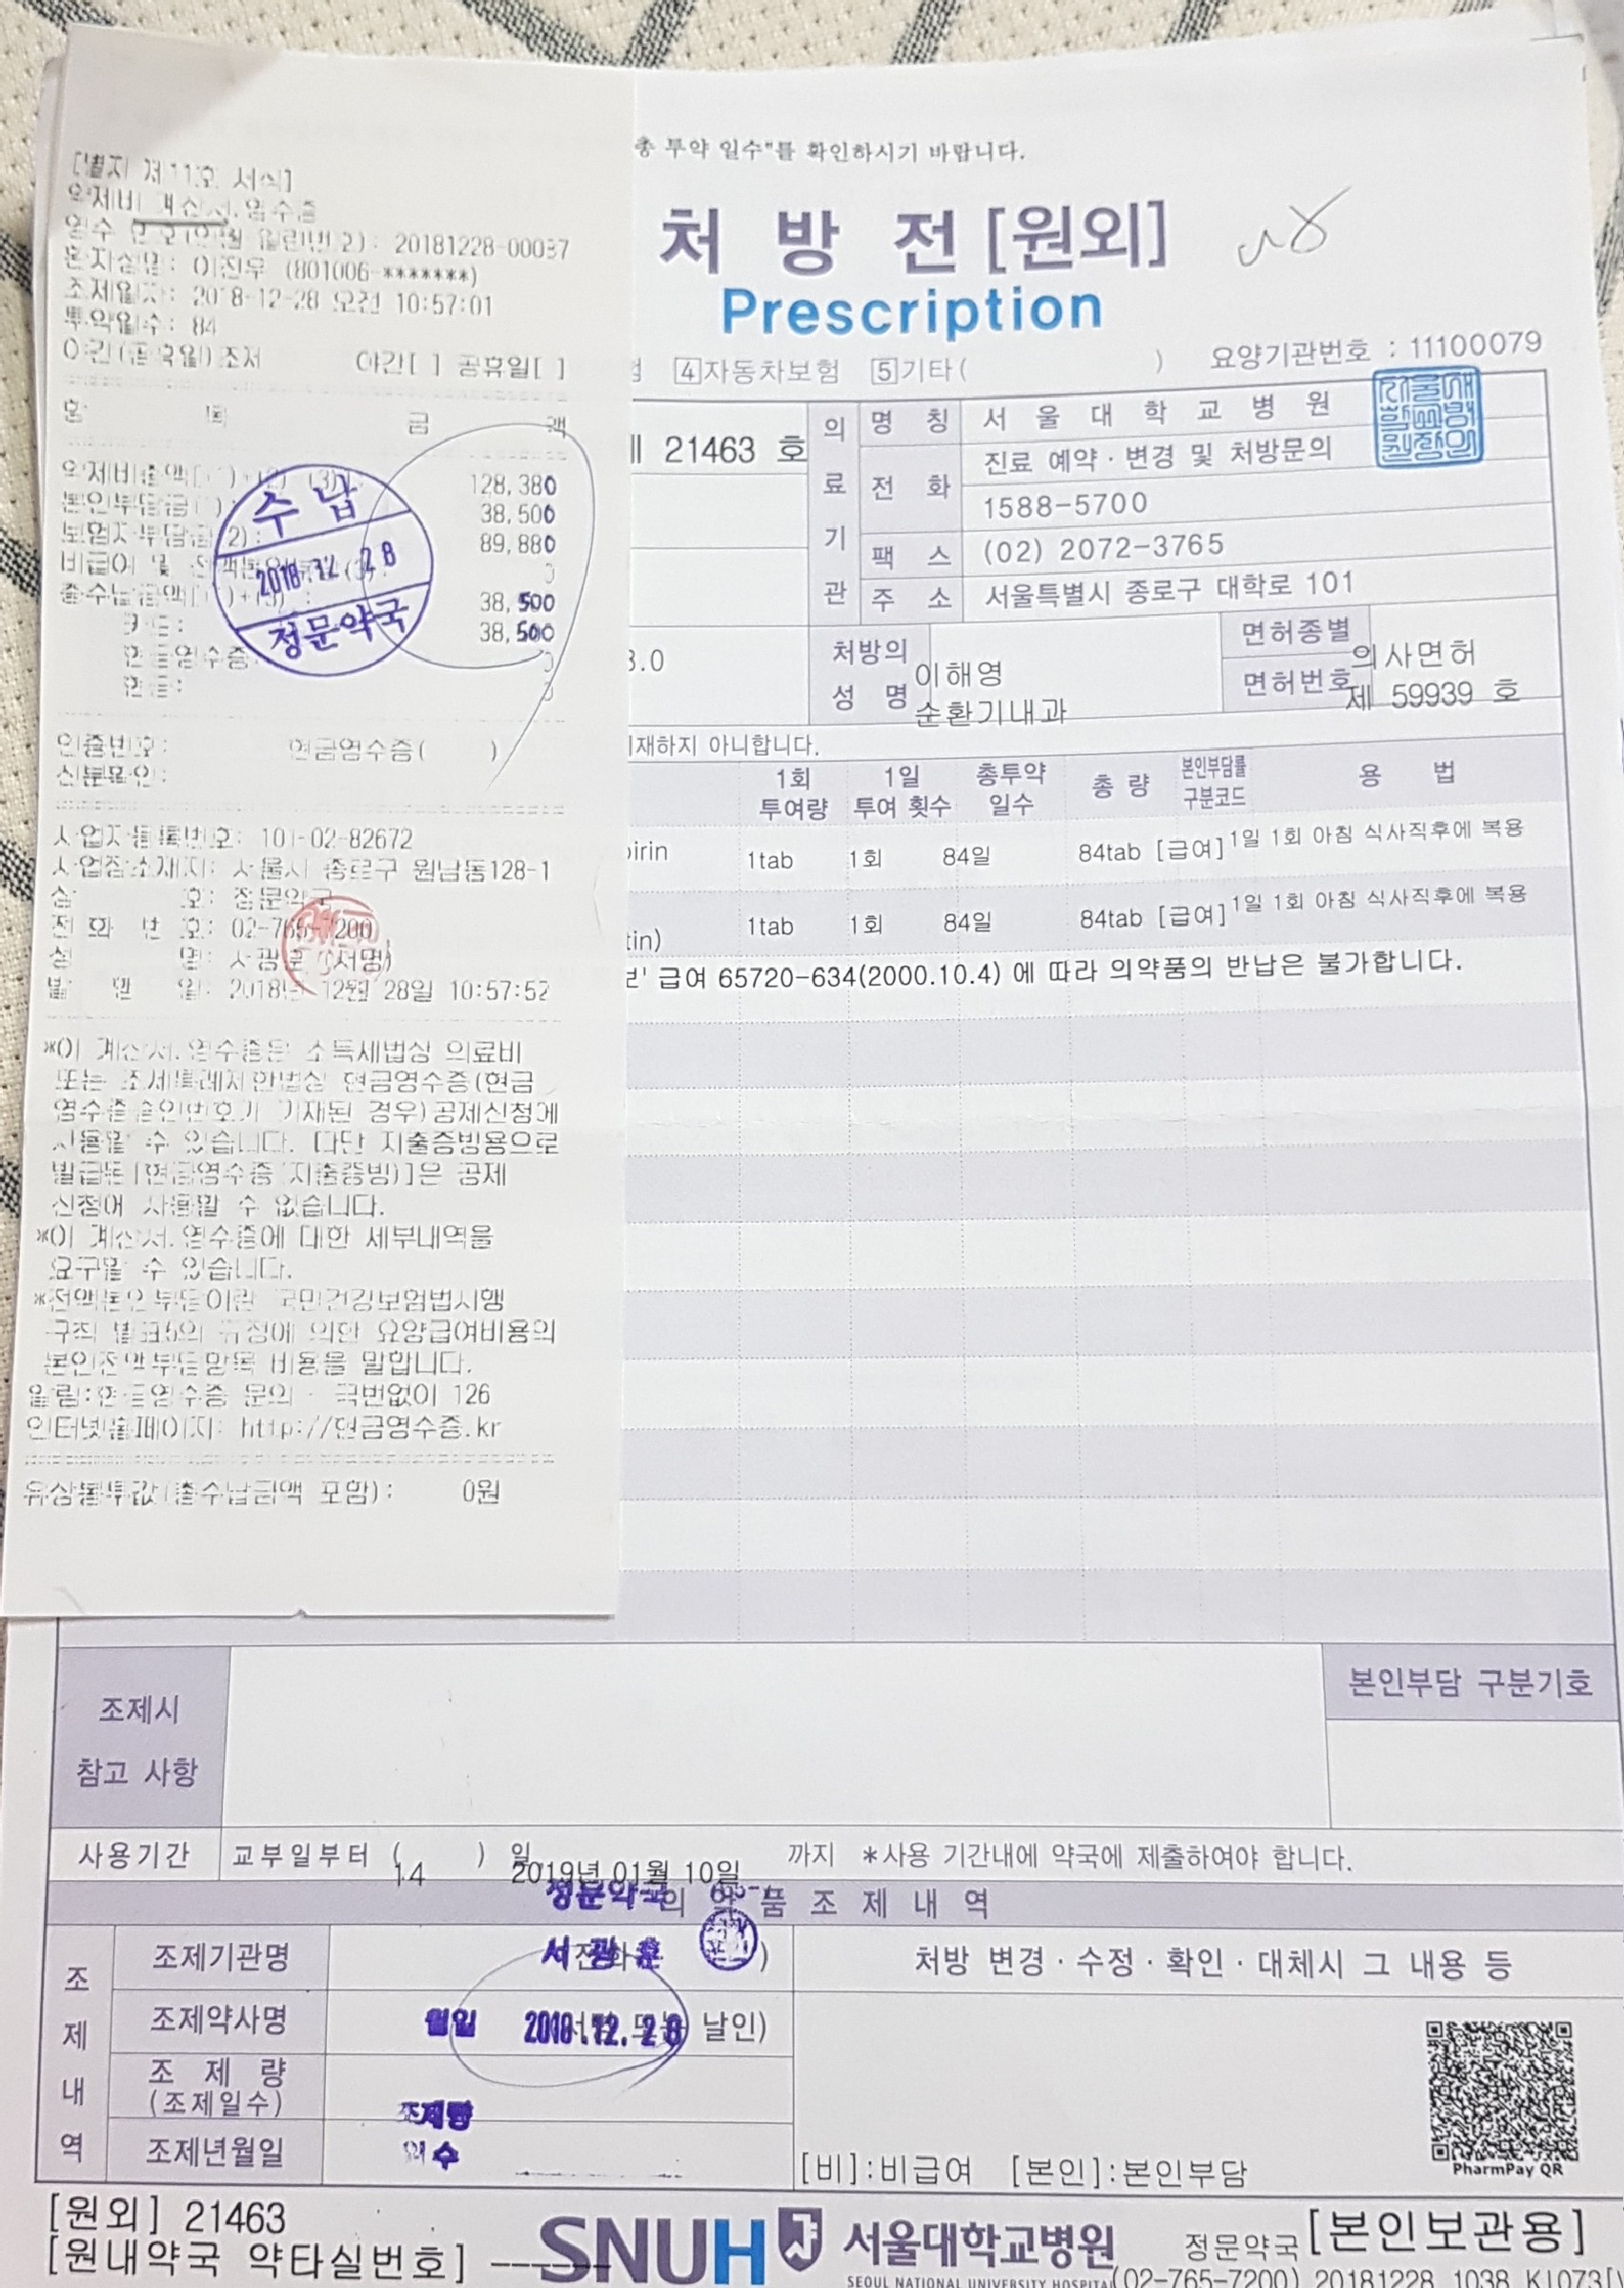 [별지 제11호 서식]
약제비 계산서.영수증
영수 번호(연월 일련번호): 20181228-00037
환자성명: 이진우 (801006-*******)
조제일자: 2018-12-28 오전 10:57:01
투약일수: 84
야간(공휴일)조제 야간[ ] 공휴일[ ]
항 목 금 액
약제비총액[(1)+(2)+(3)] 128,380
본인부담금(1): 38,500
보험자부담금(2): 89,880
비급여 및 전액본인부담(3): 0
총수납금액[(1)+(3)]: 38,500
카드: 38,500
현금영수증: 0
현금: 0
수납
2018.12.28
정문약국
인증번호: 현금영수증( )
신분확인:
사업자등록번호: 101-02-82672
사업장소재지: 서울시 종로구 원남동128-1
상 호: 정문약국
전 화 번 호: 02-765-7200
성 명: 서광훈 (서명)
발 행 일: 2018년 12월 28일 10:57:52
*이 계산서.영수증은 소득세법상 의료비
또는 조세특례제한법상 현금영수증(현금
영수증승인번호가 기재된 경우)공제신청에
사용할 수 있습니다. 다만 지출증빙용으로
발급된[현금영수증(지출증빙)]은 공제
신청에 사용할 수 없습니다.
*이 계산서.영수증에 대한 세부내역을
요구할 수 있습니다.
*전액본인부담이란 국민건강보험법시행
규칙 별표5의 규정에 의한 요양급여비용의
본인전액부담항목 비용을 말합니다.
알림:현금영수증 문의 : 국번없이 126
인터넷홈페이지: http://현금영수증.kr
유상봉투값(총수납금액 포함): 0원
총 투약 일수"를 확인하시기 바랍니다.
처 방 전 [원외]
Prescription
험 4자동차보험 5기타( ) 요양기관번호 : 11100079
제 21463 호
의료기관
명 칭 서 울 대 학 교 병 원
진료 예약·변경 및 처방문의
전 화 1588-5700
팩 스 (02) 2072-3765
주 소 서울특별시 종로구 대학로 101
3.0
처방의 성 명 이해영
순환기내과
면허종별 의사면허
면허번호 제 59939 호
기재하지 아니합니다.
1회 투여량 1일 투여 횟수 총투약 일수 총 량 본인부담률 구분코드 용 법
pirin 1tab 1회 84일 84tab [급여] 1일 1회 아침 식사직후에 복용
tin) 1tab 1회 84일 84tab [급여] 1일 1회 아침 식사직후에 복용
보' 급여 65720-634(2000.10.4) 에 따라 의약품의 반납은 불가합니다.
조제시
참고 사항
본인부담 구분기호
사용기간 교부일부터 ( 14 ) 일 2019년 01월 10일 까지 *사용 기간내에 약국에 제출하여야 합니다.
의 약 품 조 제 내 역
정문약국
조제내역
조제기관명 (전화 )
서광훈
처방 변경·수정·확인·대체시 그 내용 등
조제약사명 날인)
월일 2018.12.28
조 제 량
(조제일수)
조제량
조제년월일
일수
[비]:비급여 [본인]:본인부담
PharmPay QR
[원외] 21463
[원내약국 약타실번호]
SNUH 서울대학교병원
SEOUL NATIONAL UNIVERSITY HOSPITAL
정문약국 [본인보관용]
(02-765-7200) 20181228 1038 K1073